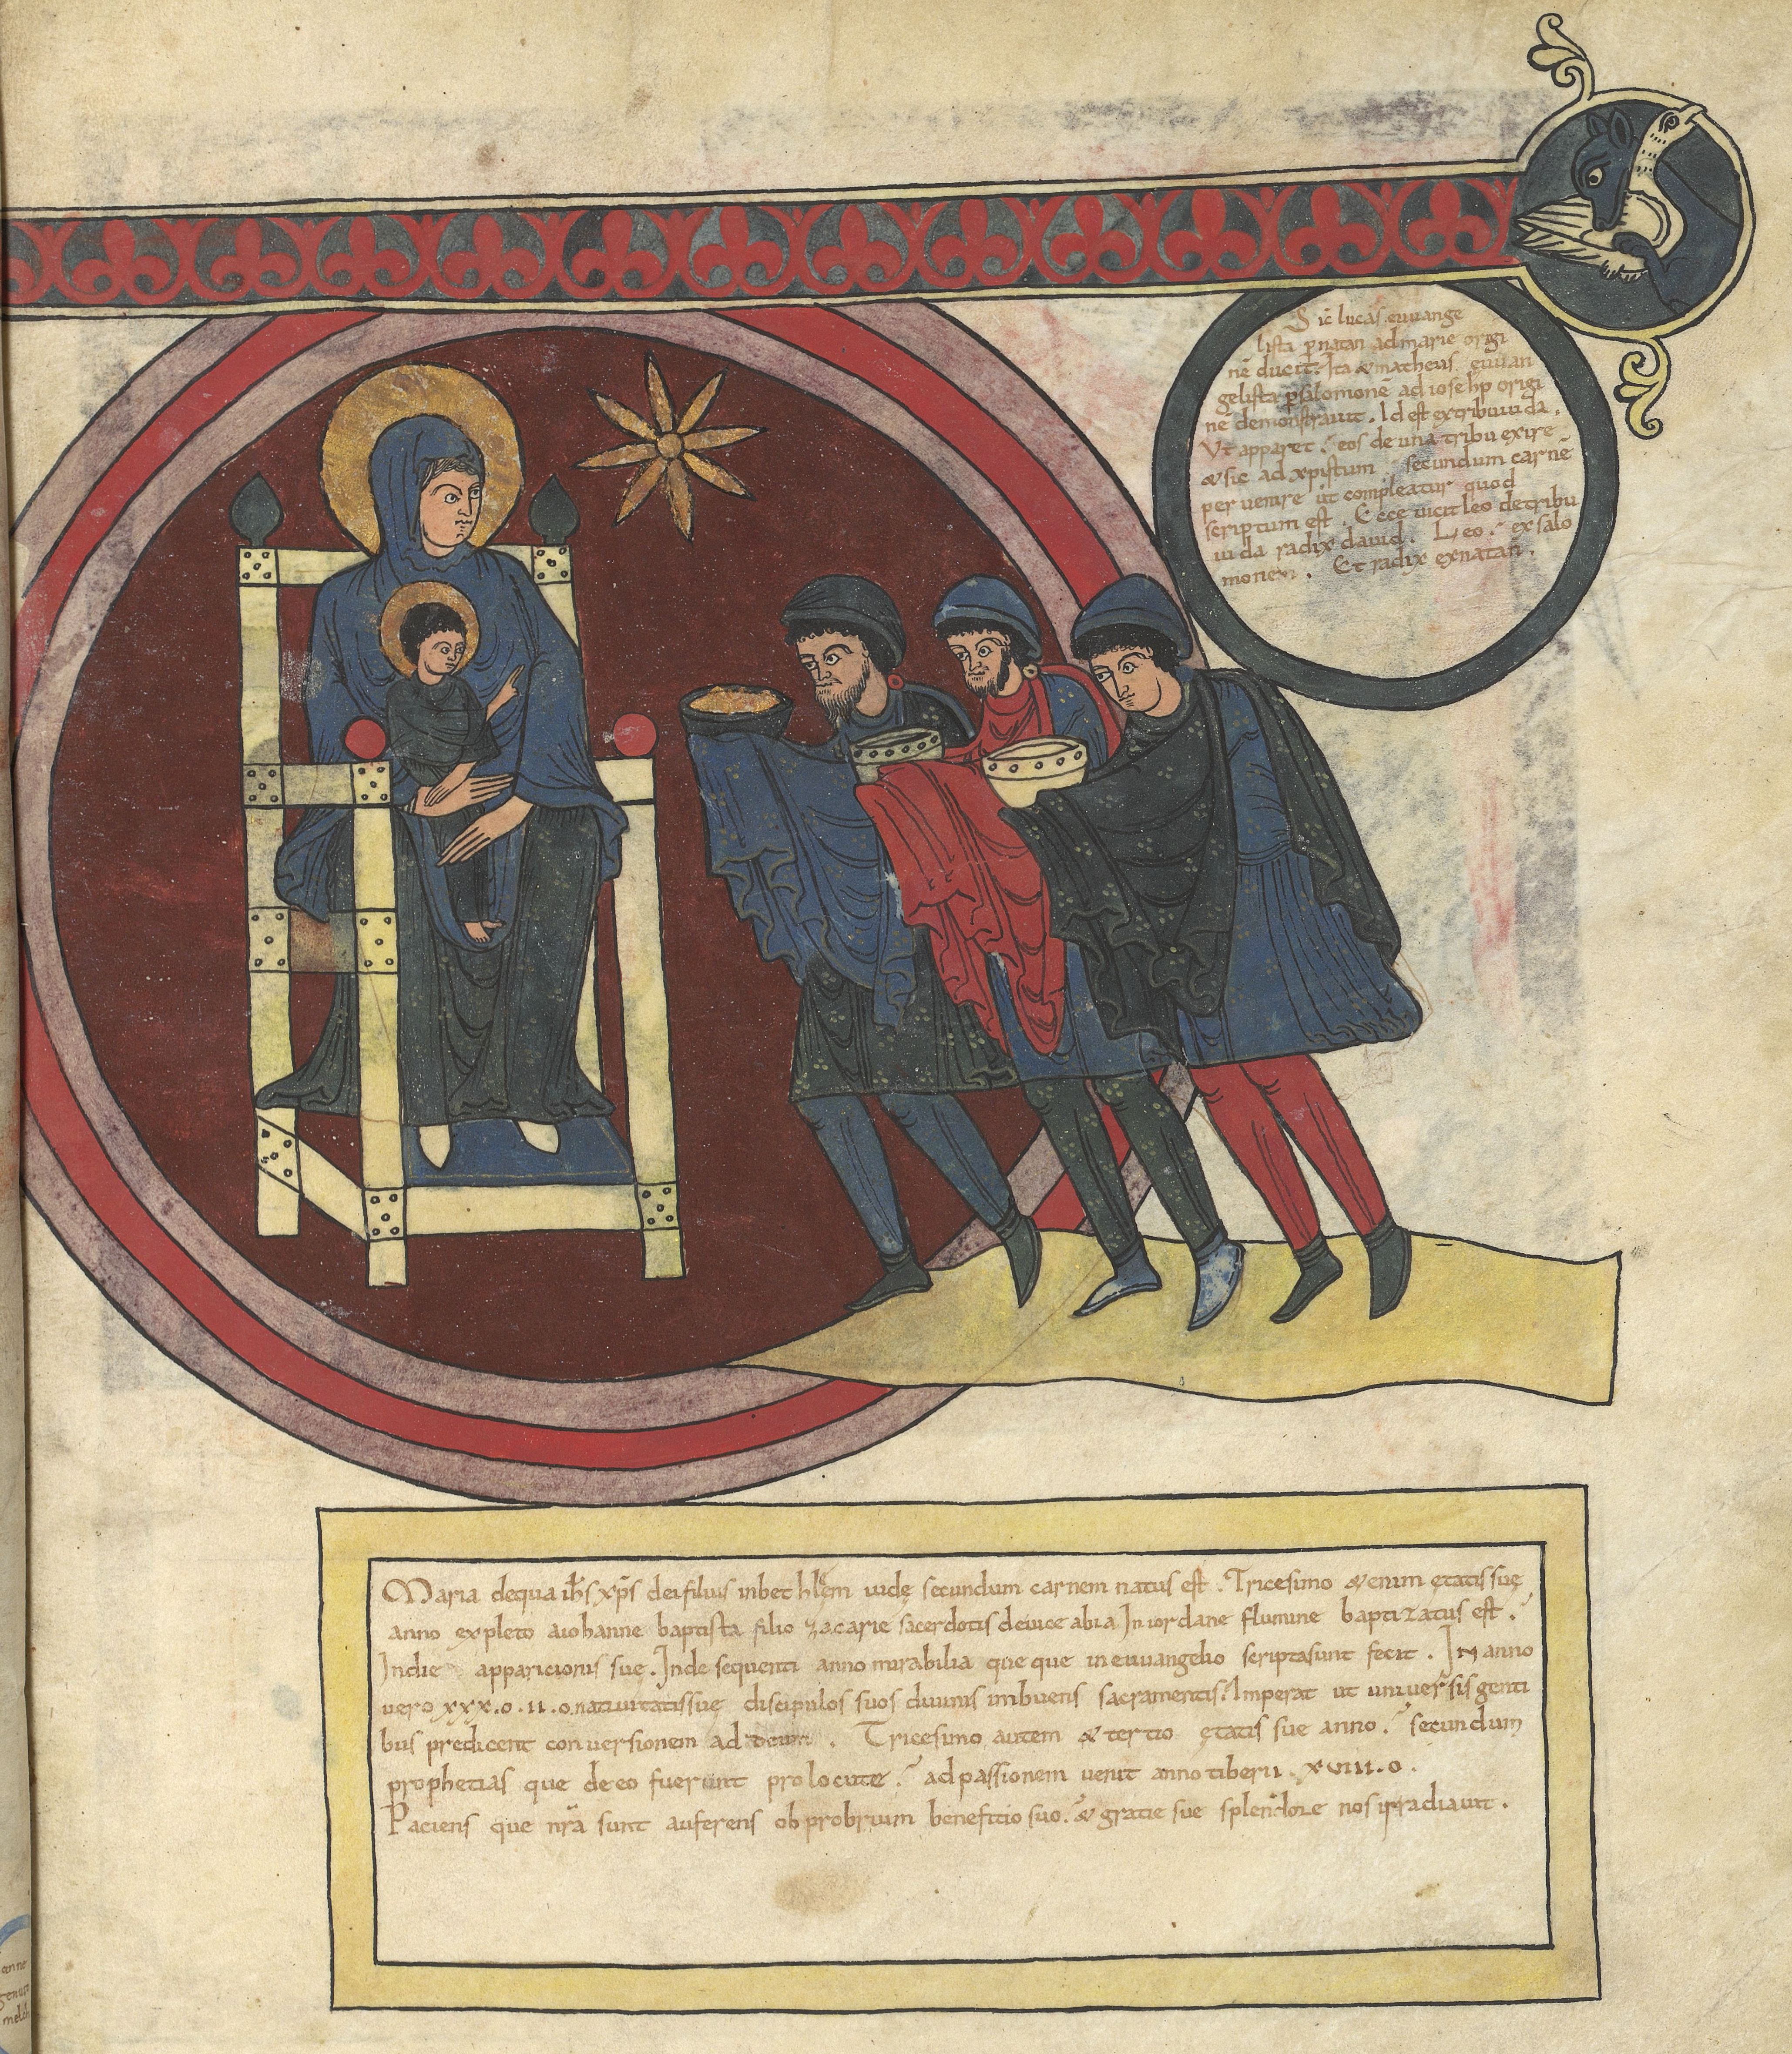 Sic lucas euuange
lista p natan ad marie origi
nē ducit. Ita & matheus euuan
gelista p salomonē ad iosehp origi
nē demonstrauit. Id est ex tribu iuda.
Ut apparet eos de una tribu exire
& sic ad xpistum secundum carnē
peruenire ut compleatur quod
scriptum est. Ecce uicit leo de tribu
iuda radix dauid. Leo ex salo
monem. Et radix ex natan.
Maria de qua ihs xps dei filius in bethlem iudę secundum carnem natus est. Tricesimo & enim ętatis suę
anno expleto a iohanne baptista filio zacarie sacerdotis de uice abia In iordane flumine baptizatus est.
In die apparicionis sue. Inde sequenti anno mirabilia que que in euuangelio scripta sunt fecit. In anno
uero xxx.o.ii.o natiuitatis suę discipulos suos diuinis imbuens sacramentis. Imperat ut uniuersis genti
bus predicent conuersionem ad deum. Tricesimo autem & tertio ętatis sue anno. secundum
prophetias que de eo fuerunt prolocute. ad passionem uenit anno tiberii. xviii.o.
Paciens que nra sunt auferens obprobrium benefitio suo. & gratie sue splendore nos irradiauit.
anne
genuit